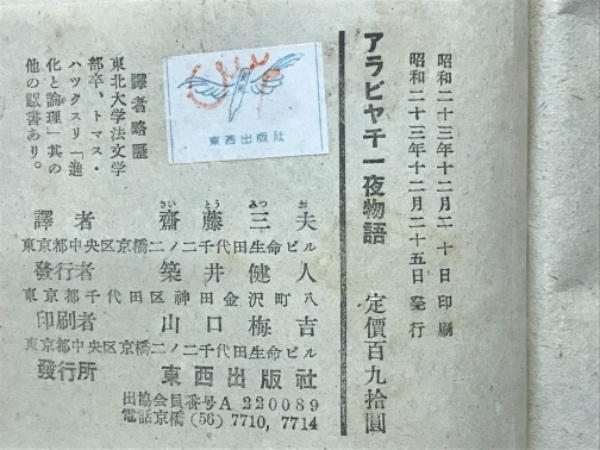 昭和二十三年十二月二十日印刷
昭和二十三年十二月二十五日発行
アラビヤ千一夜物語
定價百九拾圓
東西出版社
譯者略歴
東北大学法文学
部卒、トマス・
ハックスリ「進
化と論理」其の
他の訳書あり。
さい とう みつ お
譯者 齋藤三夫
東京都中央区京橋二ノ二千代田生命ビル
發行者 築井健人
東京都千代田区神田金沢町八
印刷者 山口梅吉
東京都中央区京橋二ノ二千代田生命ビル
發行所 東西出版社
出協会員番号A 220089
電話京橋(56) 7710, 7714